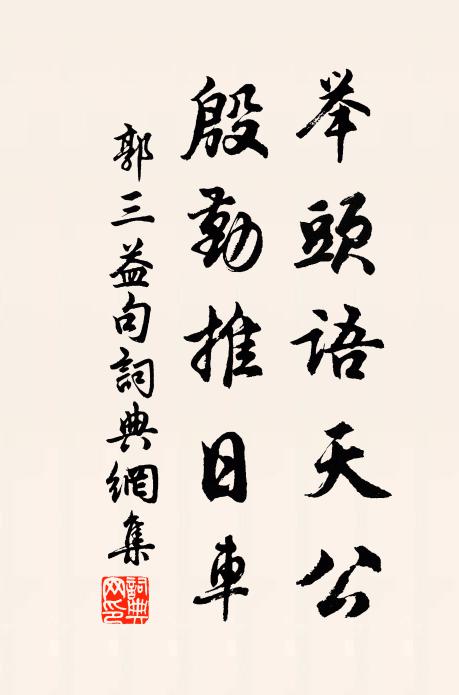 举頭語天公
殷勤推日車
郭三益句詞典網集
詞典網印